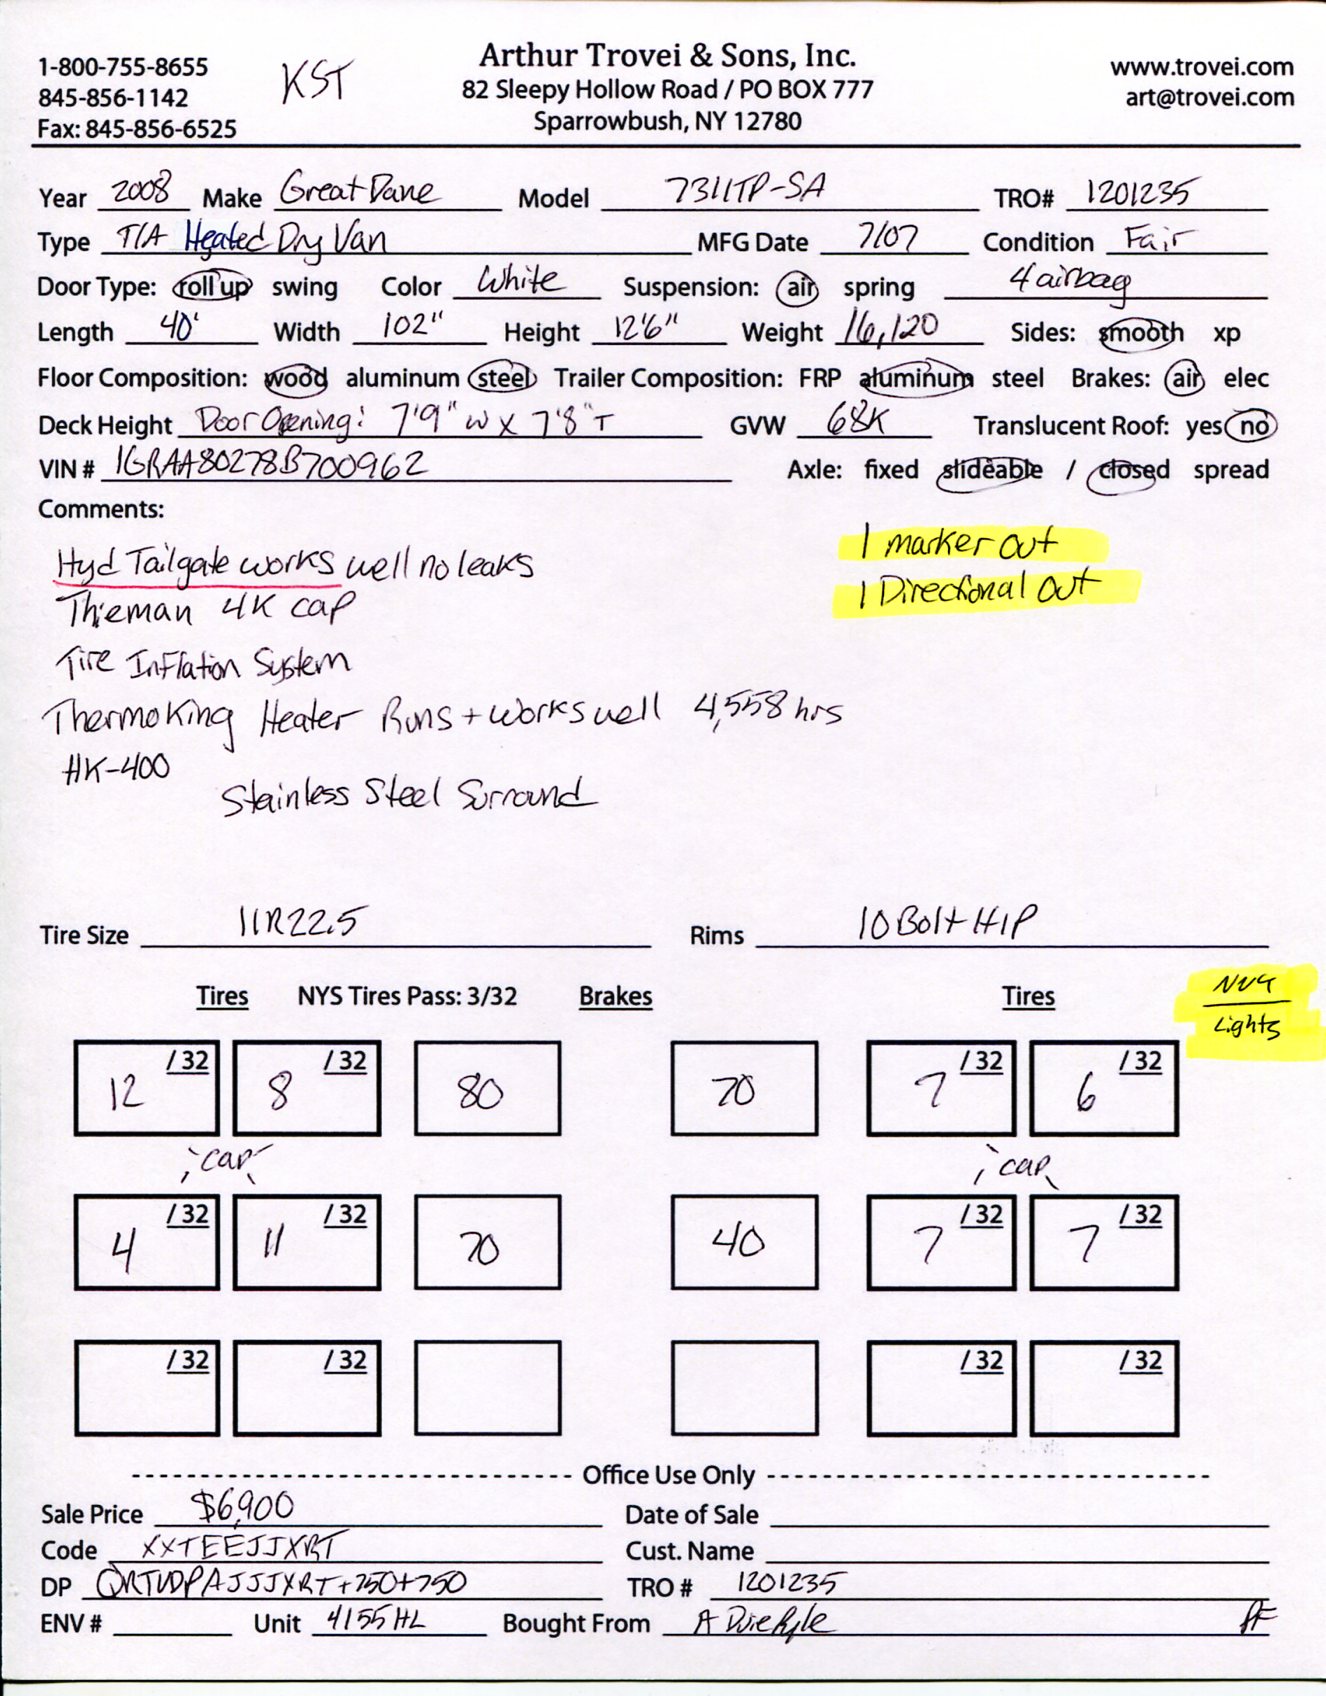 Arthur Trovei & Sons, Inc.
1-800-755-8655 KST 82 Sleepy Hollow Road / PO BOX 777 www.trovei.com
845-856-1142 Sparrowbush, NY 12780 art@trovei.com
Fax: 845-856-6525
Year 2008 Make Great Dane Model 7311TP-SA TRO# 1201235
Type T/A Heated Dry Van MFG Date 7/07 Condition Fair
Door Type: roll up swing Color White Suspension: air spring 4 airbag
Length 40' Width 102" Height 12'6" Weight 16,120 Sides: smooth xp
Floor Composition: wood aluminum steel Trailer Composition: FRP aluminum steel Brakes: air elec
Deck Height Door Opening: 7'9" W x 7'8" T GVW 68K Translucent Roof: yes no
VIN # 1GRAA80278B700962 Axle: fixed slideable / closed spread
Comments:
1 marker out
Hyd Tailgate works well no leaks
1 Directional out
Thieman 4K cap
Tire Inflation System
Thermo King Heater Runs + works well 4,558 hrs
HK-400
Stainless Steel Surround
Tire Size 11R22.5 Rims 10 Bolt HP
Tires NYS Tires Pass: 3/32 Brakes Tires
Lights
12 /32 8 /32 80 70 7 /32 6 /32
cap cap
4 /32 11 /32 70 40 7 /32 7 /32
/32 /32 /32 /32
Office Use Only
Sale Price $6,900 Date of Sale
Code XXTEEJJXRT Cust. Name
DP QRTUDPAJJJXRT+750+750 TRO # 1201235
ENV # Unit 4155HL Bought From A Duie Pyle